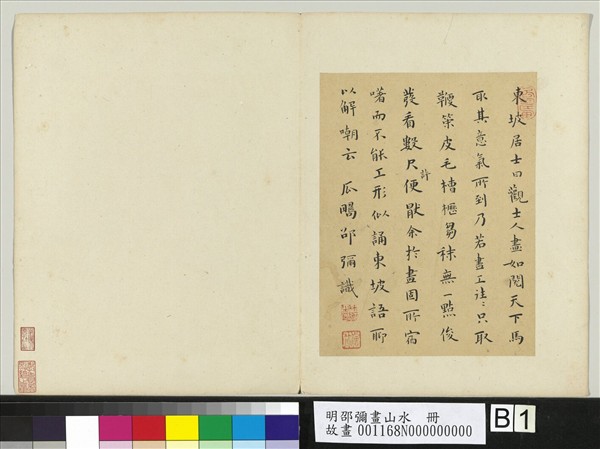 東坡居士曰觀士人畫如閱天下馬
取其意氣所到乃若畫工往〻只取
鞭策皮毛槽櫪芻秣無一點俊
發看數尺許便厭余於畫固所宿
嗜而不能工形似誦東坡語聊
以解嘲云 瓜疇邵彌識
明邵彌畫山水 冊
故畫 001168N000000000
B 1